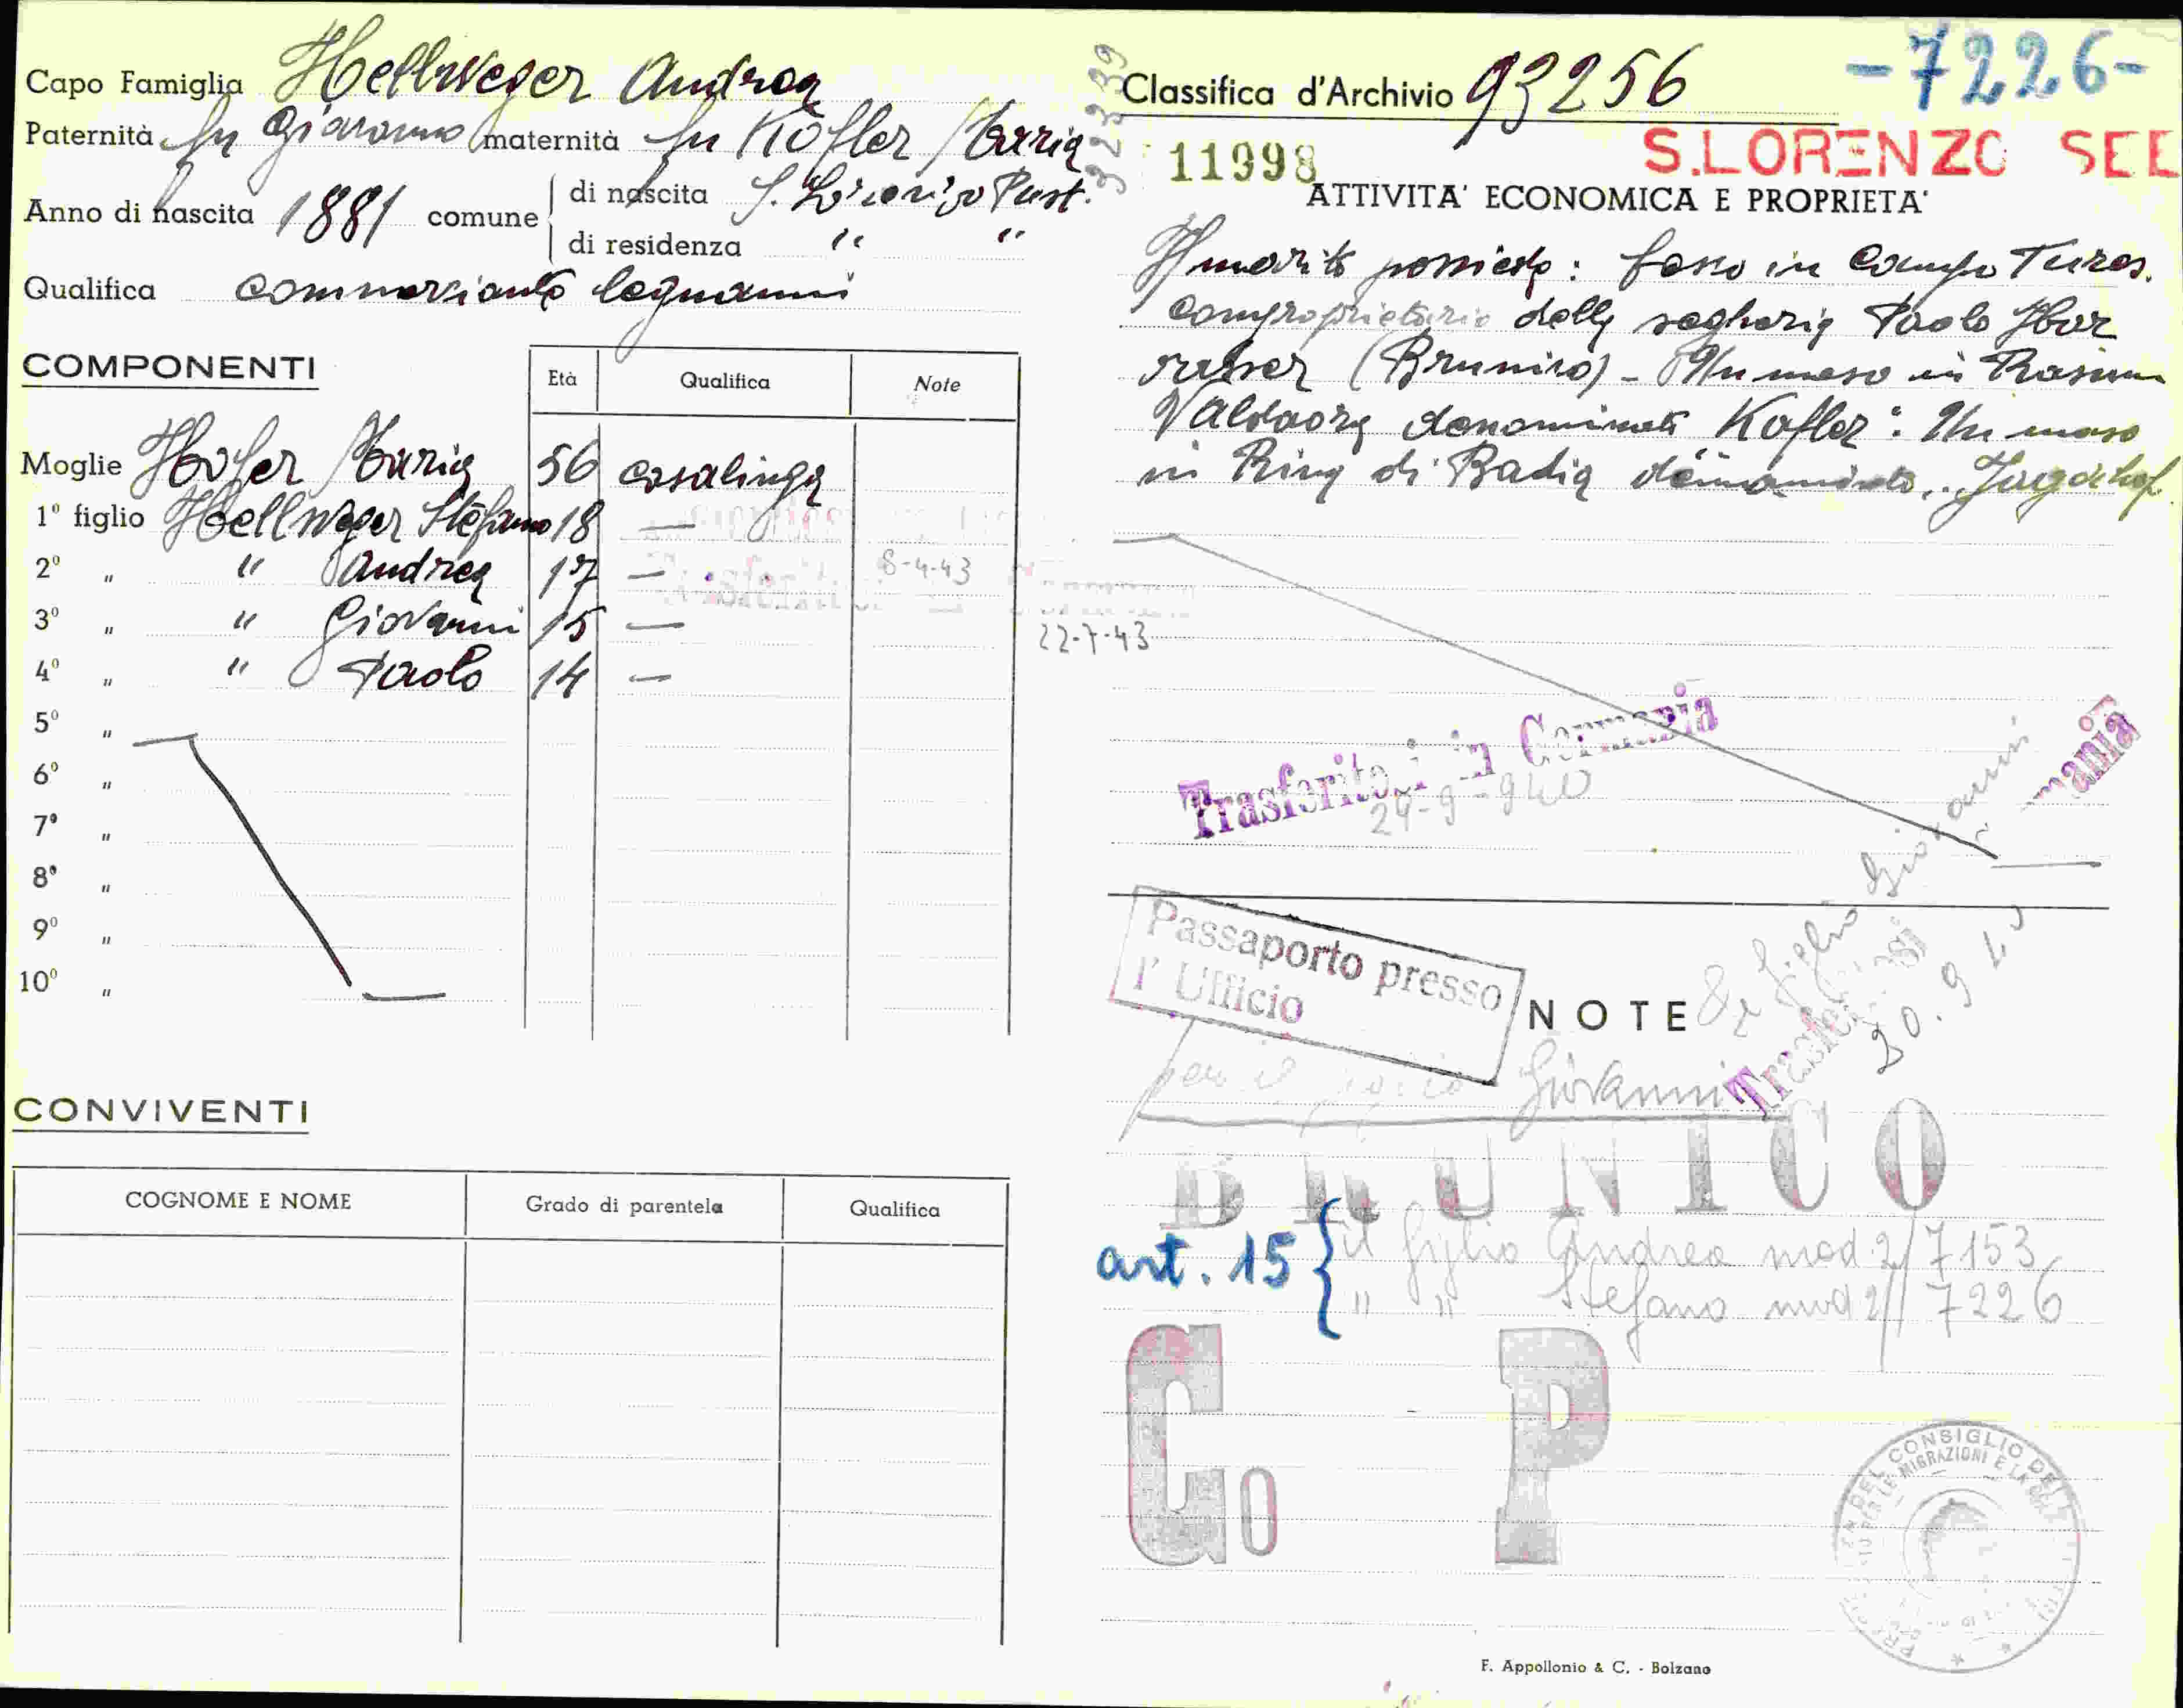 Capo Famiglia Hellweger Andrea
Paternità fu Giovanni maternità fu Kofler Maria
Anno di nascita 1881 comune di nascita S. Lorenzo Pust.
di residenza " "
Qualifica commerciante legnami
COMPONENTI
Età Qualifica Note
Moglie Hofer Maria 56 casalinga
1° figlio Hellweger Stefano 18 —
2° " " Andrea 17 — 8-4-43
3° " " Giovanni 15 —
22-7-43
4° " " Paolo 14 —
5° "
6° "
7° "
8° "
9° "
10° "
CONVIVENTI
COGNOME E NOME Grado di parentela Qualifica
Classifica d'Archivio 93256
-7226-
11998
S.LORENZO SEE
ATTIVITA' ECONOMICA E PROPRIETA'
Il marito possiede: in Campo Tures.
comproprietario della segheria Paolo
(Brunico) - Un maso in Rasun
Valdaora denominato Kofler: Un maso
in di Badia
Trasferitosi in Germania
24-9-940
mania
Passaporto presso
l' Ufficio
NOTE
figlio Giovanni
per il figlio Giovanni
BRUNICO
art. 15 { il figlio Andrea mod. 2/ 7153
" " Stefano mod 2/ 7226
Go P
F. Appollonio & C. - Bolzano